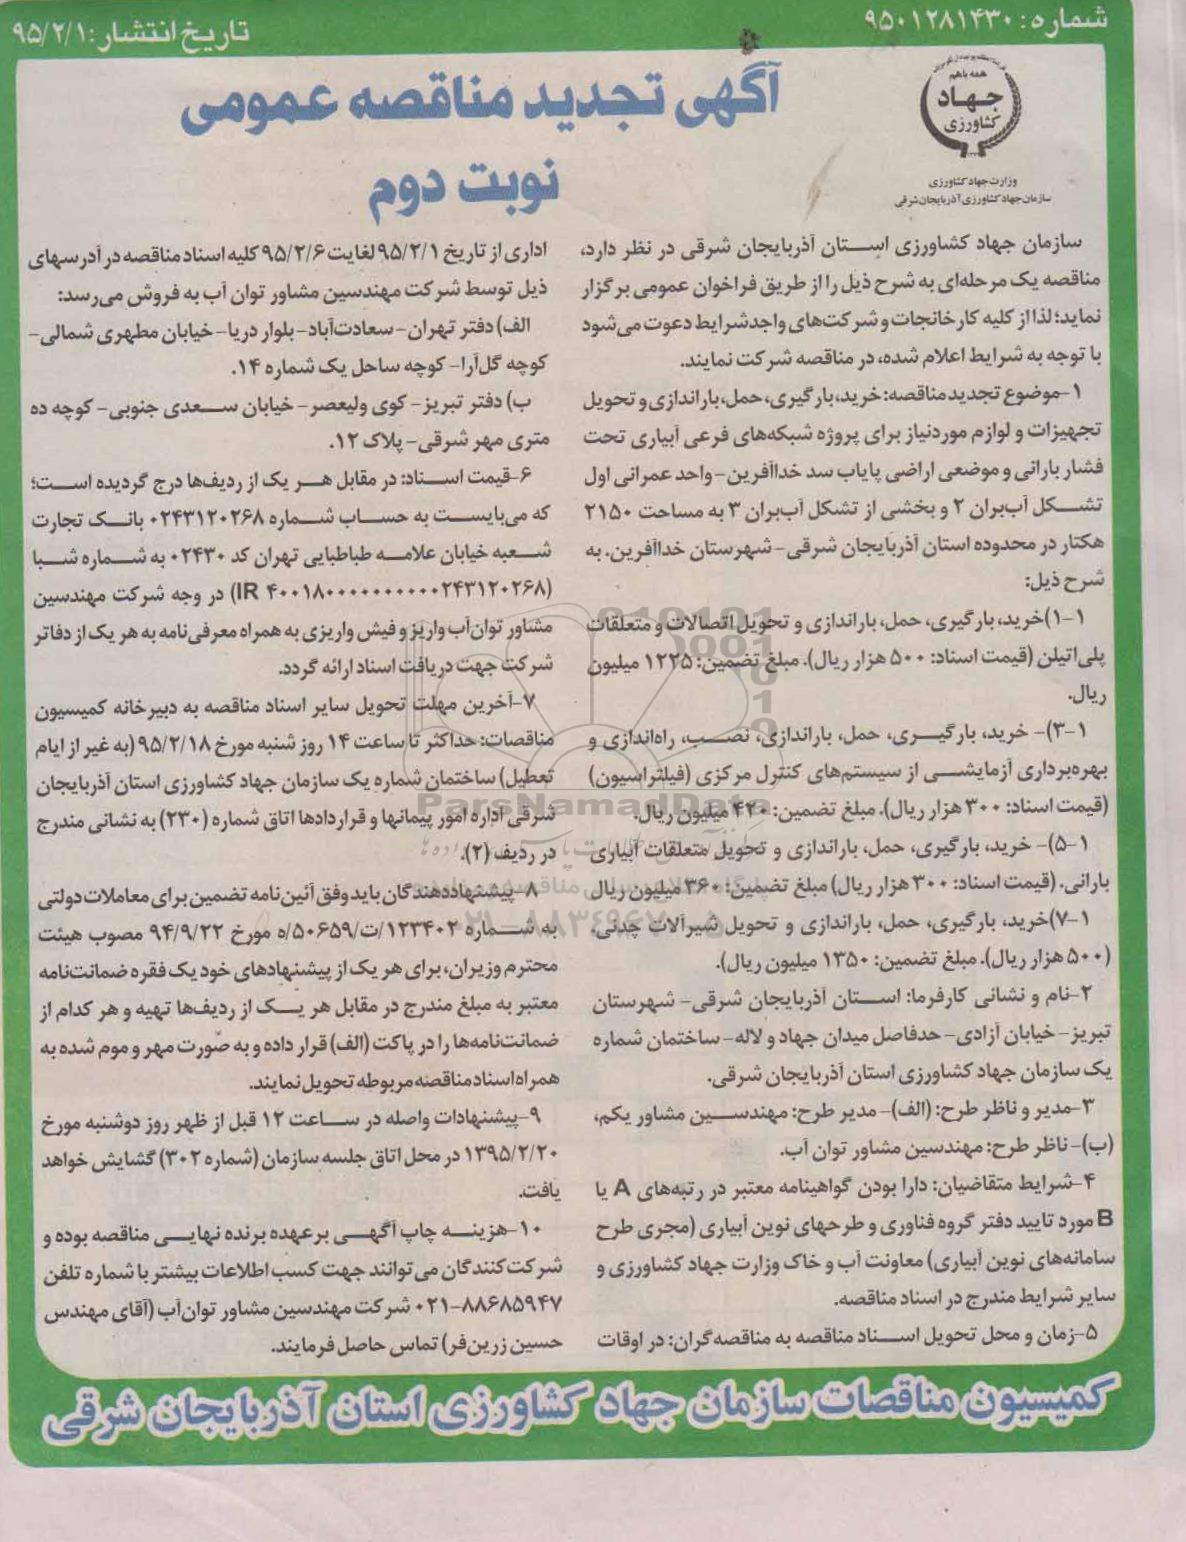 شماره: ۹۵۰۱۲۸۱۴۳۰
تاریخ انتشار: ۹۵/۲/۱
همه باهم
جهاد
کشاورزی
وزارت جهاد کشاورزی
سازمان جهاد کشاورزی آذربایجان شرقی
آگهی تجدید مناقصه عمومی
نوبت دوم
سازمان جهاد کشاورزی استان آذربایجان شرقی در نظر دارد،
مناقصه یک مرحله‌ای به شرح ذیل را از طریق فراخوان عمومی برگزار
نماید؛ لذا از کلیه کارخانجات و شرکت‌های واجد شرایط دعوت می‌شود
با توجه به شرایط اعلام شده، در مناقصه شرکت نمایند.
۱-موضوع تجدید مناقصه: خرید، بارگیری، حمل، باراندازی و تحویل
تجهیزات و لوازم موردنیاز برای پروژه شبکه‌های فرعی آبیاری تحت
فشار بارانی و موضعی اراضی پایاب سد خداآفرین- واحد عمرانی اول
تشکل آب‌بران ۲ و بخشی از تشکل آب‌بران ۳ به مساحت ۲۱۵۰
هکتار در محدوده استان آذربایجان شرقی- شهرستان خداآفرین. به
شرح ذیل:
۱-۱)خرید، بارگیری، حمل، باراندازی و تحویل اتصالات و متعلقات
پلی‌اتیلن (قیمت اسناد: ۵۰۰ هزار ریال). مبلغ تضمین: ۱۲۲۵ میلیون
ریال.
۱-۳)- خرید، بارگیری، حمل، باراندازی، نصب، راه‌اندازی و
بهره‌برداری آزمایشی از سیستم‌های کنترل مرکزی (فیلتراسیون)
(قیمت اسناد: ۳۰۰ هزار ریال). مبلغ تضمین: ۴۲۰ میلیون ریال.
۱-۵)- خرید، بارگیری، حمل، باراندازی و تحویل متعلقات آبیاری
بارانی. (قیمت اسناد: ۳۰۰ هزار ریال) مبلغ تضمین: ۳۶۰ میلیون ریال
۱-۷)خرید، بارگیری، حمل، باراندازی و تحویل شیرآلات چدنی.
(۵۰۰ هزار ریال). مبلغ تضمین: ۱۳۵۰ میلیون ریال).
۲-نام و نشانی کارفرما: استان آذربایجان شرقی- شهرستان
تبریز- خیابان آزادی- حدفاصل میدان جهاد و لاله- ساختمان شماره
یک سازمان جهاد کشاورزی استان آذربایجان شرقی.
۳-مدیر و ناظر طرح: (الف)- مدیر طرح: مهندسین مشاور یکم،
(ب)- ناظر طرح: مهندسین مشاور توان آب.
۴-شرایط متقاضیان: دارا بودن گواهینامه معتبر در رتبه‌های A یا
B مورد تایید دفتر گروه فناوری و طرحهای نوین آبیاری (مجری طرح
سامانه‌های نوین آبیاری) معاونت آب و خاک وزارت جهاد کشاورزی و
سایر شرایط مندرج در اسناد مناقصه.
۵-زمان و محل تحویل اسناد مناقصه به مناقصه‌گران: در اوقات
اداری از تاریخ ۹۵/۲/۱ لغایت ۹۵/۲/۶ کلیه اسناد مناقصه در آدرسهای
ذیل توسط شرکت مهندسین مشاور توان آب به فروش می‌رسد:
الف) دفتر تهران- سعادت‌آباد- بلوار دریا- خیابان مطهری شمالی-
کوچه گل‌آرا- کوچه ساحل یک شماره ۱۴.
ب) دفتر تبریز- کوی ولیعصر- خیابان سعدی جنوبی- کوچه ده
متری مهر شرقی- پلاک ۱۲.
۶-قیمت اسناد: در مقابل هر یک از ردیف‌ها درج گردیده است؛
که می‌بایست به حساب شماره ۰۲۴۳۱۲۰۲۶۸ بانک تجارت
شعبه خیابان علامه طباطبایی تهران کد ۰۲۴۳۰ به شماره شبا
(IR ۴۰۰۱۸۰۰۰۰۰۰۰۰۰۰۰۲۴۳۱۲۰۲۶۸) در وجه شرکت مهندسین
مشاور توان‌آب واریز و فیش واریزی به همراه معرفی‌نامه به هر یک از دفاتر
شرکت جهت دریافت اسناد ارائه گردد.
۷-آخرین مهلت تحویل سایر اسناد مناقصه به دبیرخانه کمیسیون
مناقصات: حداکثر تا ساعت ۱۴ روز شنبه مورخ ۹۵/۲/۱۸ (به غیر از ایام
تعطیل) ساختمان شماره یک سازمان جهاد کشاورزی استان آذربایجان
شرقی اداره امور پیمانها و قراردادها اتاق شماره (۲۳۰) به نشانی مندرج
در ردیف (۲).
۸-پیشنهاددهندگان باید وفق آئین‌نامه تضمین برای معاملات دولتی
به شماره ۱۲۳۴۰۲/ت/۵۰۶۵۹ه مورخ ۹۴/۹/۲۲ مصوب هیئت
محترم وزیران، برای هر یک از پیشنهادهای خود یک فقره ضمانت‌نامه
معتبر به مبلغ مندرج در مقابل هر یک از ردیف‌ها تهیه و هر کدام از
ضمانت‌نامه‌ها را در پاکت (الف) قرار داده و به صورت مهر و موم شده به
همراه اسناد مناقصه مربوطه تحویل نمایند.
۹-پیشنهادات واصله در ساعت ۱۲ قبل از ظهر روز دوشنبه مورخ
۱۳۹۵/۲/۲۰ در محل اتاق جلسه سازمان (شماره ۳۰۲) گشایش خواهد
یافت.
۱۰-هزینه چاپ آگهی برعهده برنده نهایی مناقصه بوده و
شرکت‌کنندگان می‌توانند جهت کسب اطلاعات بیشتر با شماره تلفن
۰۲۱-۸۸۶۸۵۹۴۷ شرکت مهندسین مشاور توان‌آب (آقای مهندس
حسین زرین‌فر) تماس حاصل فرمایند.
کمیسیون مناقصات سازمان جهاد کشاورزی استان آذربایجان شرقی
ParsNamadData